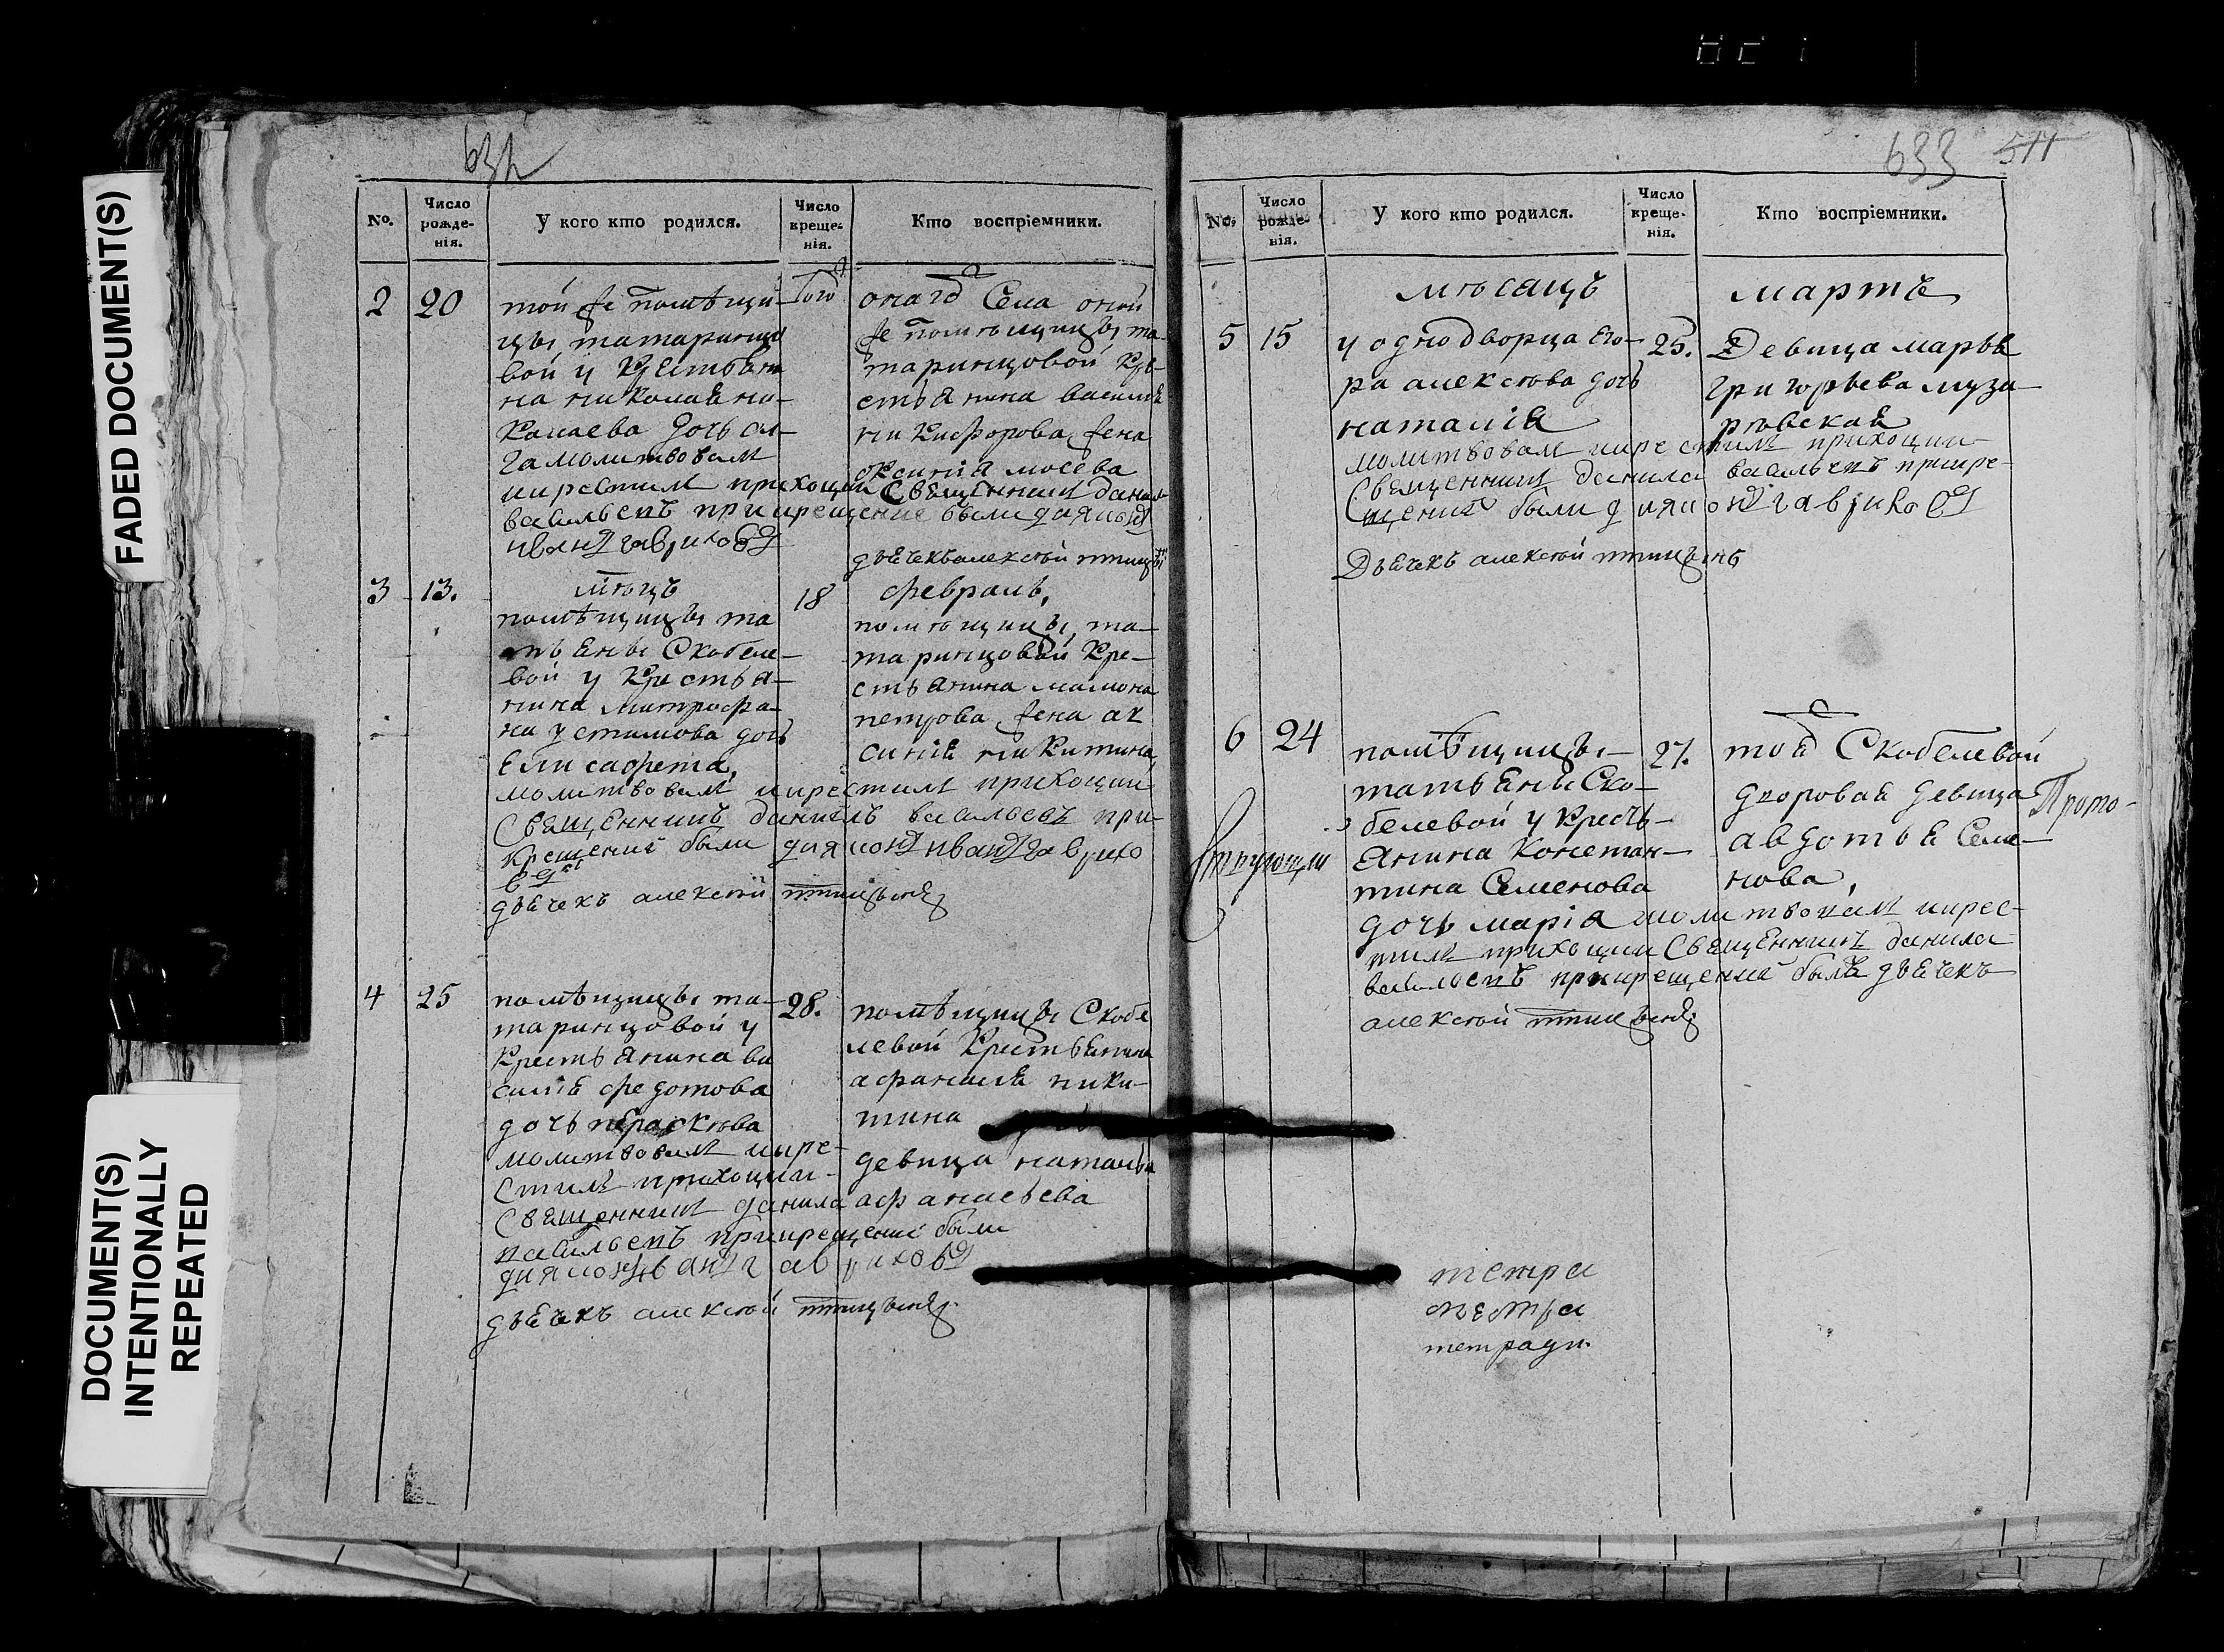 FADED DOCUMENT(S)
DOCUMENT(S)
INTENTIONALLY
REPEATED
632
No.
Число
рожде-
нія.
У кого кто родился.
Число
креще-
нія.
Кто воспріемники.
2
20
той же помѣщи-
цы татаринцо
вой у крестьяни
на николая ни-
колаева дочь ол-
га молитвовалъ
икрестилъ приходскій священникъ данила
васильевъ прикрещеніе были діяконъ
иванъ гавриковъ
того
онаго села оной
же помѣщицы та-
таринцовой кре-
стьянина василія
никифорова жена
оксинія мосева
дьячекъ алексѣй птицынъ
3
13.
мѣсцъ
помѣщицы та
тьяны Скобеле-
вой у крестья-
нина митрофа-
на устимова дочь
Елисафета,
молитвовалъ икрестилъ приходскій
Священникъ данилъ васильевъ при-
крещеніи были діяконъ иванъ гаврико
въ
дьячекъ алексѣй птицынъ
18
февраль,
помѣщицы та-
таринцовой кре-
стьянина мамона
петрова жена ак
синія никитина,
4
25
помѣщицы та-
таринцовой у
крестьянина ва
силія федотова
дочь параскѣва
молитвовалъ икре-
стилъ приходскій
Священникъ данила
васильевъ прикрещеніе были
діяконъ иванъ гавриковъ
дьячекъ алексѣй птицынъ
28.
помѣщицы Скобе
левой крестьянина
афанасія ники-
тина
девица наталья
афанасьева
633 511
No.
Число
рожде-
нія.
У кого кто родился.
Число
креще-
нія.
Кто воспріемники.
мѣсяцъ
мартъ
5
15
у однодворца его-
ра алексѣва дочь
наталія
молитвовалъ икрестилъ приходскій
Священникъ данила васильевъ прикре-
щеніе были діяконъ гавриковъ
Дьячекъ алексѣй птицынъ
25.
Девица марья
григорьева муза-
ровская
6
24
помѣщицы
татьяны Ско-
белевой у кресть-
янина констан-
тина Семенова
дочь марія молитвовалъ икрес-
тилъ приходскій Священникъ данила
васильевъ прикрещеніе былъ дьячекъ
алексѣй птицынъ
27.
тоя Скобелевой
дворовая девица
авдотья Семе-
нова,
Прото-
тетра
тетра
тетради.